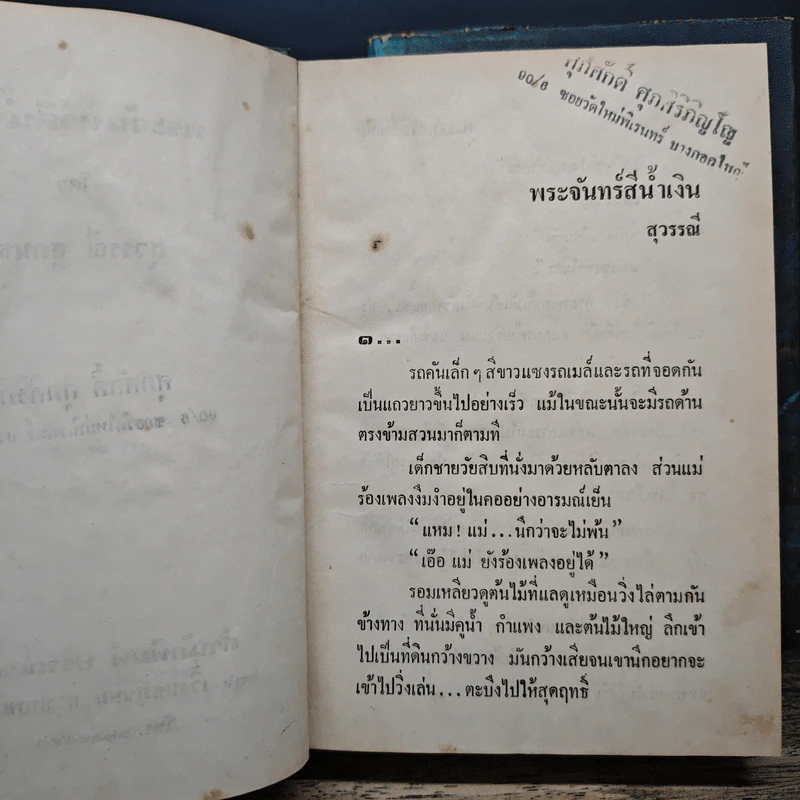 ศุภศักดิ์ ศุภสิริภิญโญ
๑๐/๘ ซอยวัดใหม่พิเรนทร์ บางกอกใหญ่
พระจันทร์สีน้ำเงิน
สุวรรณี
๑...
รถคันเล็ก ๆ สีขาวแซงรถเมล์และรถที่จอดกัน
เป็นแถวยาวขึ้นไปอย่างเร็ว แม้ในขณะนั้นจะมีรถด้าน
ตรงข้ามสวนมาก็ตามที
เด็กชายวัยสิบที่นั่งมาด้วยหลับตาลง ส่วนแม่
ร้องเพลงงึมงำอยู่ในคออย่างอารมณ์เย็น
“แหม! แม่...นึกว่าจะไม่พ้น”
“เอ๊อ แม่ ยังร้องเพลงอยู่ได้”
รอมเหลียวดูต้นไม้ที่แลดูเหมือนวิ่งไล่ตามกัน
ข้างทาง ที่นั่นมีคูน้ำ กำแพง และต้นไม้ใหญ่ ลึกเข้า
ไปเป็นที่ดินกว้างขวาง มันกว้างเสียจนเขานึกอยากจะ
เข้าไปวิ่งเล่น...ตะบึงไปให้สุดฤทธิ์